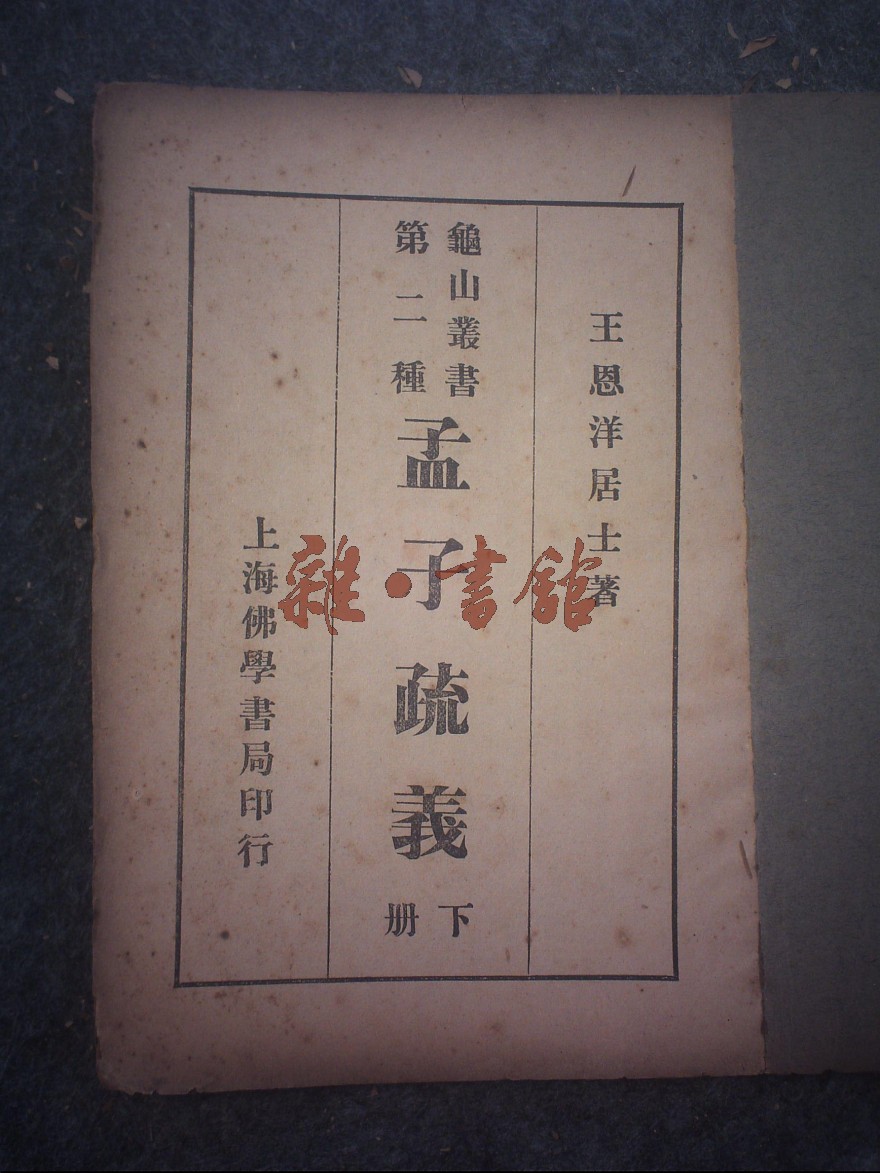 王恩洋居士著
龜山叢書
第二種
孟子疏義
下册
上海佛學書局印行
雜·書館